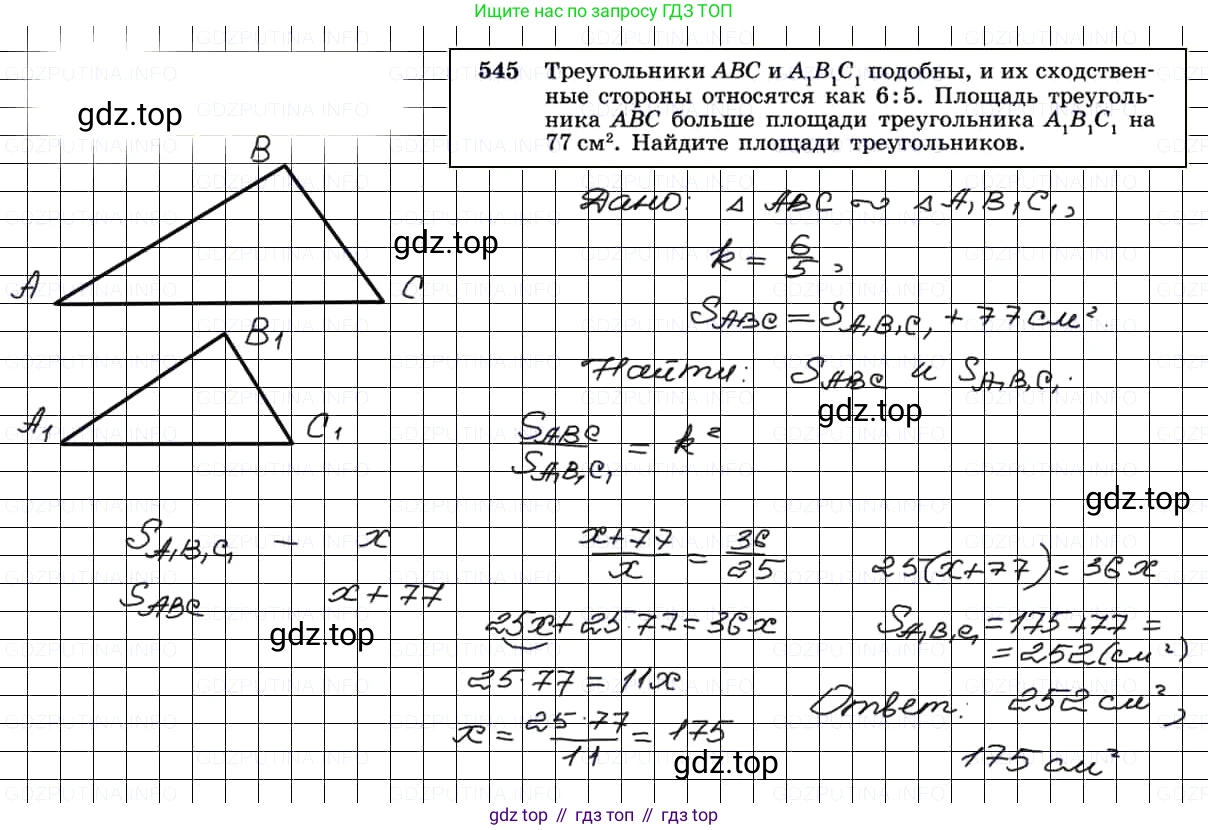 Ищите нас по запросу ГДЗ ТОП
545 Треугольники ABC и A₁B₁C₁ подобны, и их сходствен-
ные стороны относятся как 6:5. Площадь треуголь-
ника ABC больше площади треугольника A₁B₁C₁ на
77 см². Найдите площади треугольников.
gdz.top
B
A
C
gdz.top
B₁
A₁
C₁
Дано: △ ABC ∾ △ A₁B₁C₁,
k = 6/5,
S_ABC = S_A₁B₁C₁ + 77 см².
Найти: S_ABC и S_A₁B₁C₁.
gdz.top
S_ABC/S_A₁B₁C₁ = k²
gdz.top
S_A₁B₁C₁ – x
S_ABC x + 77
gdz.top
(x+77)/x = 36/25
25(x+77) = 36x
25x + 25·77 = 36x
25·77 = 11x
x = (25·77)/11 = 175
gdz.top
S_A₁B₁C₁ = 175+77 =
= 252 (см²)
Ответ: 252 см²,
175 см²
gdz top // гдз топ // gdz top